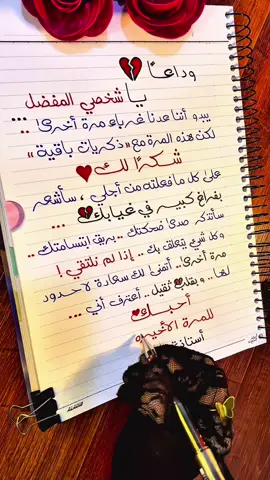 وداعًا
يا شخصي المفضل
يبدو أننا عدنا غرباء مرة أخرى! ...
لكن هذه المرة مع «ذكريات باقية»
شكرًا لك
على كل ما فعلته من أجلي، سأشعر
بفراغ كبير في غيابك ...
سأتذكر صدى ضحكتك .. بريق ابتسامتك ..
وكل شيء يتعلق بك .. إذا لم نلتقي!
مرة أخرى .. أتمنى لك سعادة لا حدود
لها .. وبقلب ثقيل .. أعترف أني ...
أحبك
للمرة الأخيرة